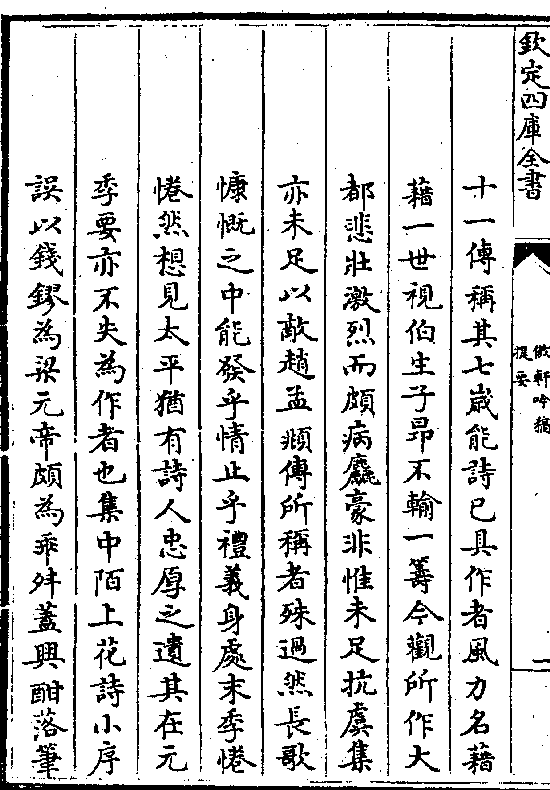 欽定四庫全書
傲軒吟稿
提要
二
十一傳稱其七歲能詩已具作者風力名藉
藉一世視伯生子昻不輸一籌今觀所作大
都悲壯激烈而頗病麤豪非惟未足抗虞集
亦未足以敵趙孟頫傳所稱者殊過然長歌
慷慨之中能發乎情止乎禮義身處末季惓
惓然想見太平猶有詩人忠厚之遺其在元
季要亦不失為作者也集中陌上花詩小序
誤以錢鏐為梁元帝頗為乖舛蓋興酣落筆